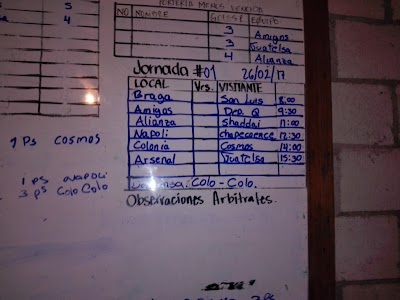 5
4
PORTERIA MENOS VENCIDA
NO NOMBRE GOLES EQUIPO
3 Amigos
3 Juatelsa
4 Alianza
Jornada #01 26/02/17
LOCAL Vrs. VISITANTE
Braga San Luis 8:00
Amigos Dep. Q 9:30
Alianza Shaddai 11:00
Napoli chapecoence 12:30
Colonia Cosmos 14:00
Arsenal Juatelsa 15:30
Descansa: Colo-Colo.
Observaciones Arbitrales.
1 Ps COSMOS
1 PS NAPOLI
3 PS Colo Colo